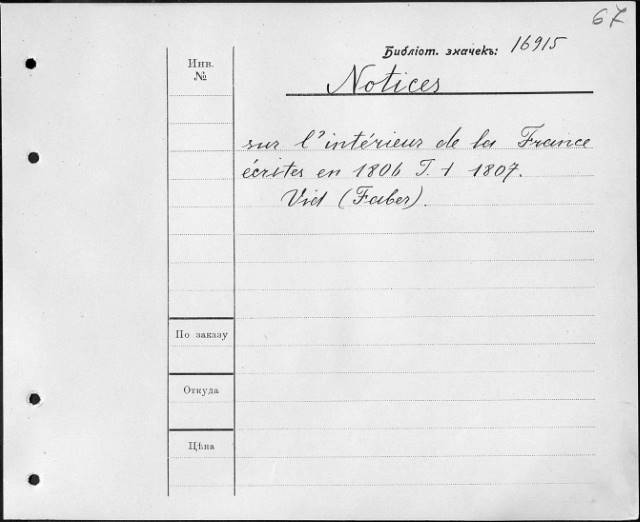 67
Библіот. значекъ: 16915
Инв.
№
Notices
sur l'intérieur de la France
écrites en 1806 T. 1 1807.
Vid (Faber).
По заказу
Откуда
Цѣна